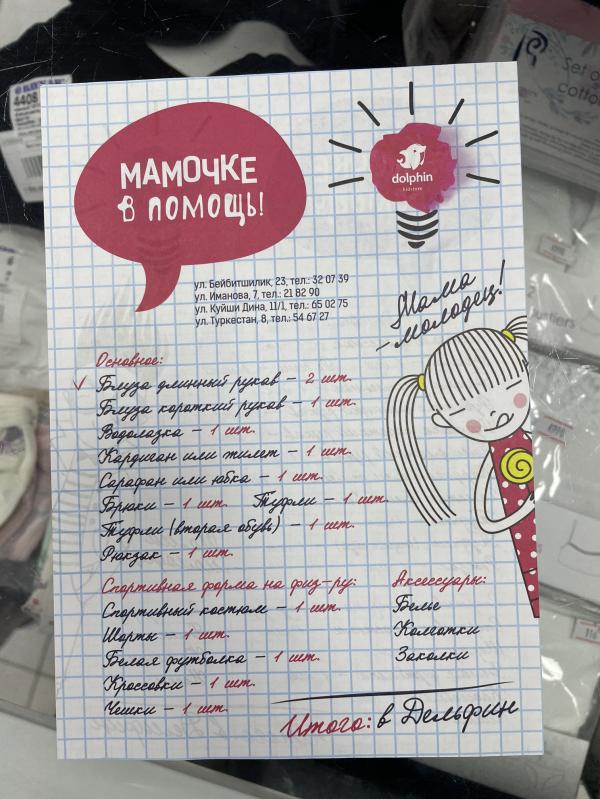 МАМОЧКЕ
В ПОМОЩЬ!
dolphin
ул. Бейбитшилик, 23, тел.: 32 07 39
ул. Иманова, 7, тел.: 21 82 90
ул. Куйши Дина, 11/1, тел.: 65 02 75
ул. Туркестан, 8, тел.: 54 67 27
Мама
- молодец!
Основное:
Блуза длинный рукав – 2 шт.
Блуза короткий рукав – 1 шт.
Водолазка – 1 шт.
Кардиган или жилет – 1 шт.
Сарафан или юбка – 1 шт.
Брюки – 1 шт. Туфли – 1 шт.
Туфли (вторая обувь) – 1 шт.
Рюкзак – 1 шт.
Спортивная форма на физ-ру:
Спортивный костюм – 1 шт.
Шорты – 1 шт.
Белая футболка – 1 шт.
Кроссовки – 1 шт.
Чешки – 1 шт.
Аксессуары:
Белье
Колготки
Заколки
Итого: в Дельфин
4408
Set of